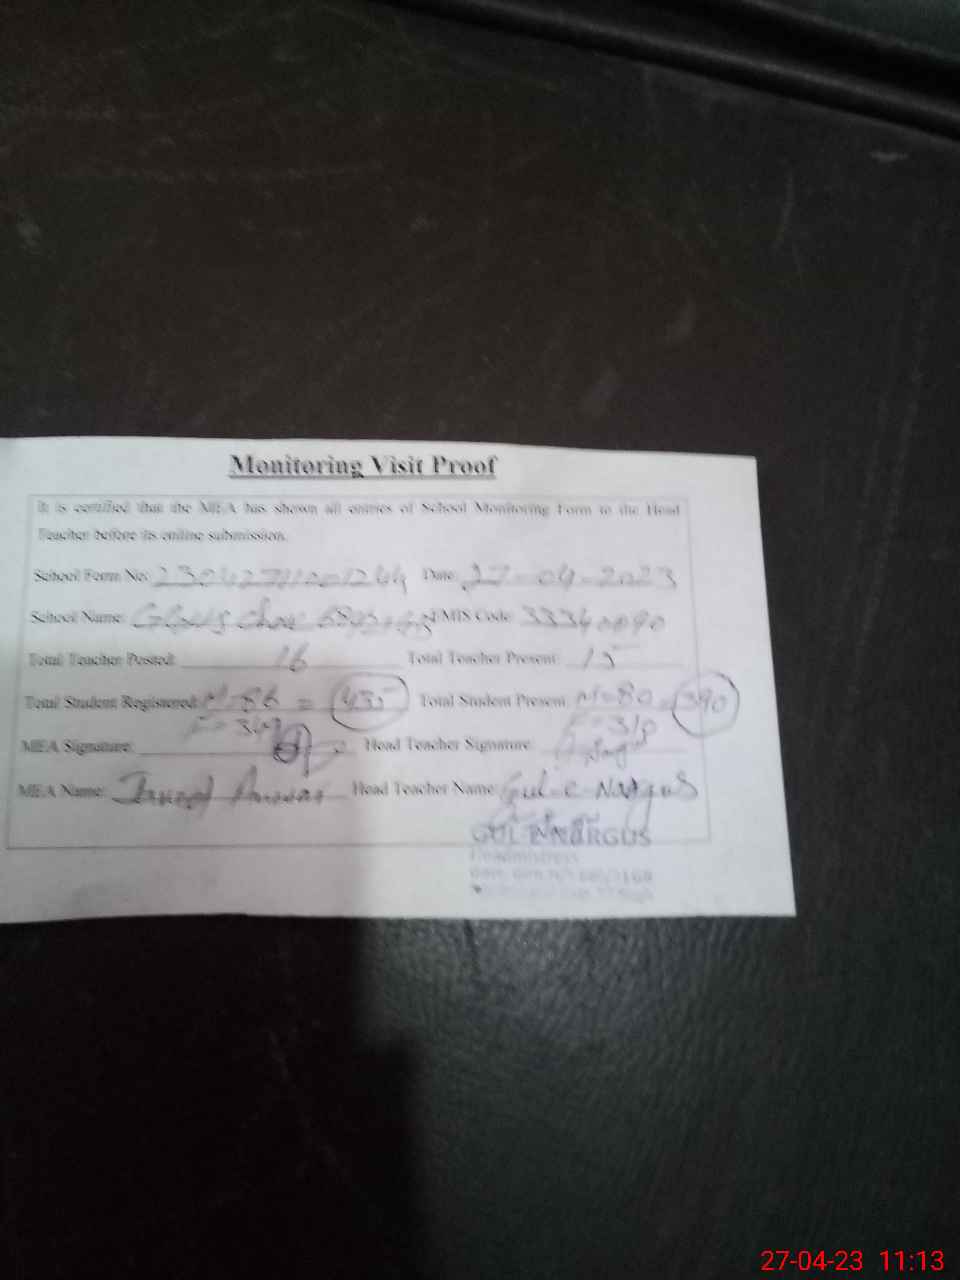 Monitoring Visit Proof
It is certified that the MEA has shown all entries of School Monitoring Form to the Head
Teacher before its online submission.
School Form No: Date: 27-04-2023
School Name: EMIS Code: 33340090
Total Teacher Posted: 16 Total Teacher Present: 15
Total Student Registered: M=86 = 435 Total Student Present: M=80 = 390
F=349 F=310
MEA Signature: Head Teacher Signature:
MEA Name: Head Teacher Name: Gul-e-Nargus
GUL-E-NARGUS
Headmistress
27-04-23 11:13